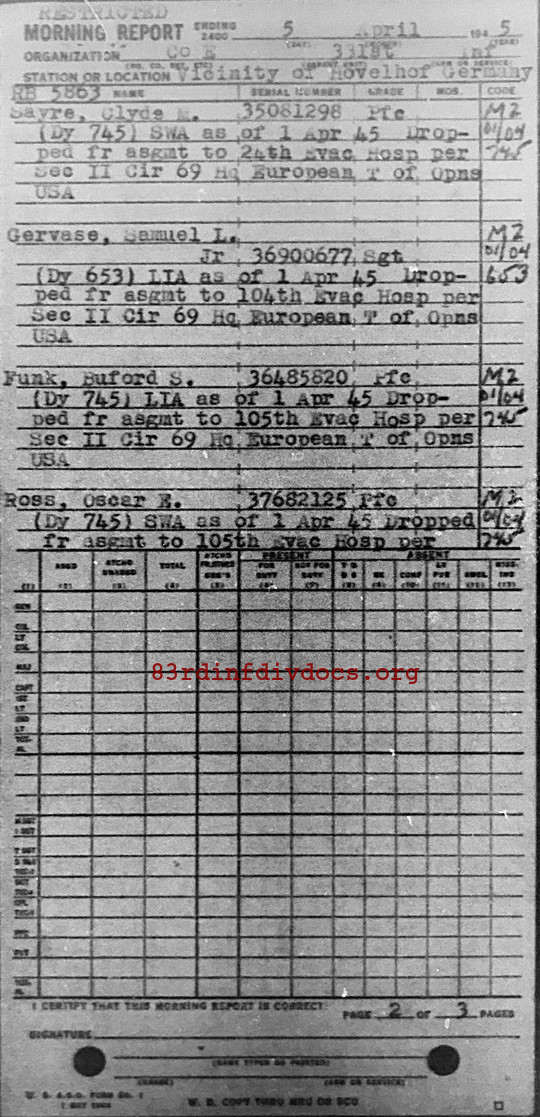 RESTRICTED
MORNING REPORT ENDING 2400 5 April 1945
ORGANIZATION Co E 331st Inf
STATION OR LOCATION Vicinity of Hovelhof Germany
RB 5863 NAME SERIAL NUMBER GRADE MOS. CODE
Sayre, Clyde M. 35081298 Pfc M2
(Dy 745) SWA as of 1 Apr 45 Drop- 01/04
ped fr asgmt to 24th Evac Hosp per 745
Sec II Cir 69 Hq European T of Opns
USA
Gervase, Samuel L. M2
Jr 36900677 Sgt 01/04
(Dy 653) LIA as of 1 Apr 45 Drop- 653
ped fr asgmt to 104th Evac Hosp per
Sec II Cir 69 Hq European T of Opns
USA
Funk, Buford S. 36485820 Pfc M2
(Dy 745) LIA as of 1 Apr 45 Drop- 01/04
ped fr asgmt to 105th Evac Hosp per 745
Sec II Cir 69 Hq European T of Opns
USA
Ross, Oscar E. 37682125 Pfc M2
(Dy 745) SWA as of 1 Apr 45 Dropped 01/04
fr asgmt to 105th Evac Hosp per 745
PRESENT ABSENT
ASGD TOTAL FOR DUTY NOT FOR DUTY SK CONF
(1) (2) (3) (4) (5) (6) (7) (8) (9) (10) (11) (12) (13)
GEN
COL
LT COL
MAJ
CAPT
1ST LT
2ND LT
83rdinfdivdocs.org
M SGT
1 SGT
T SGT
S SGT
SGT
CPL
PFC
PVT
I CERTIFY THAT THIS MORNING REPORT IS CORRECT:
PAGE 2 OF 3 PAGES
SIGNATURE
(NAME TYPED OR PRINTED)
(GRADE) (ARM OR SERVICE)
W. D. A.G.O. FORM NO. 1
W. D. COPY THRU MRU OR SCU